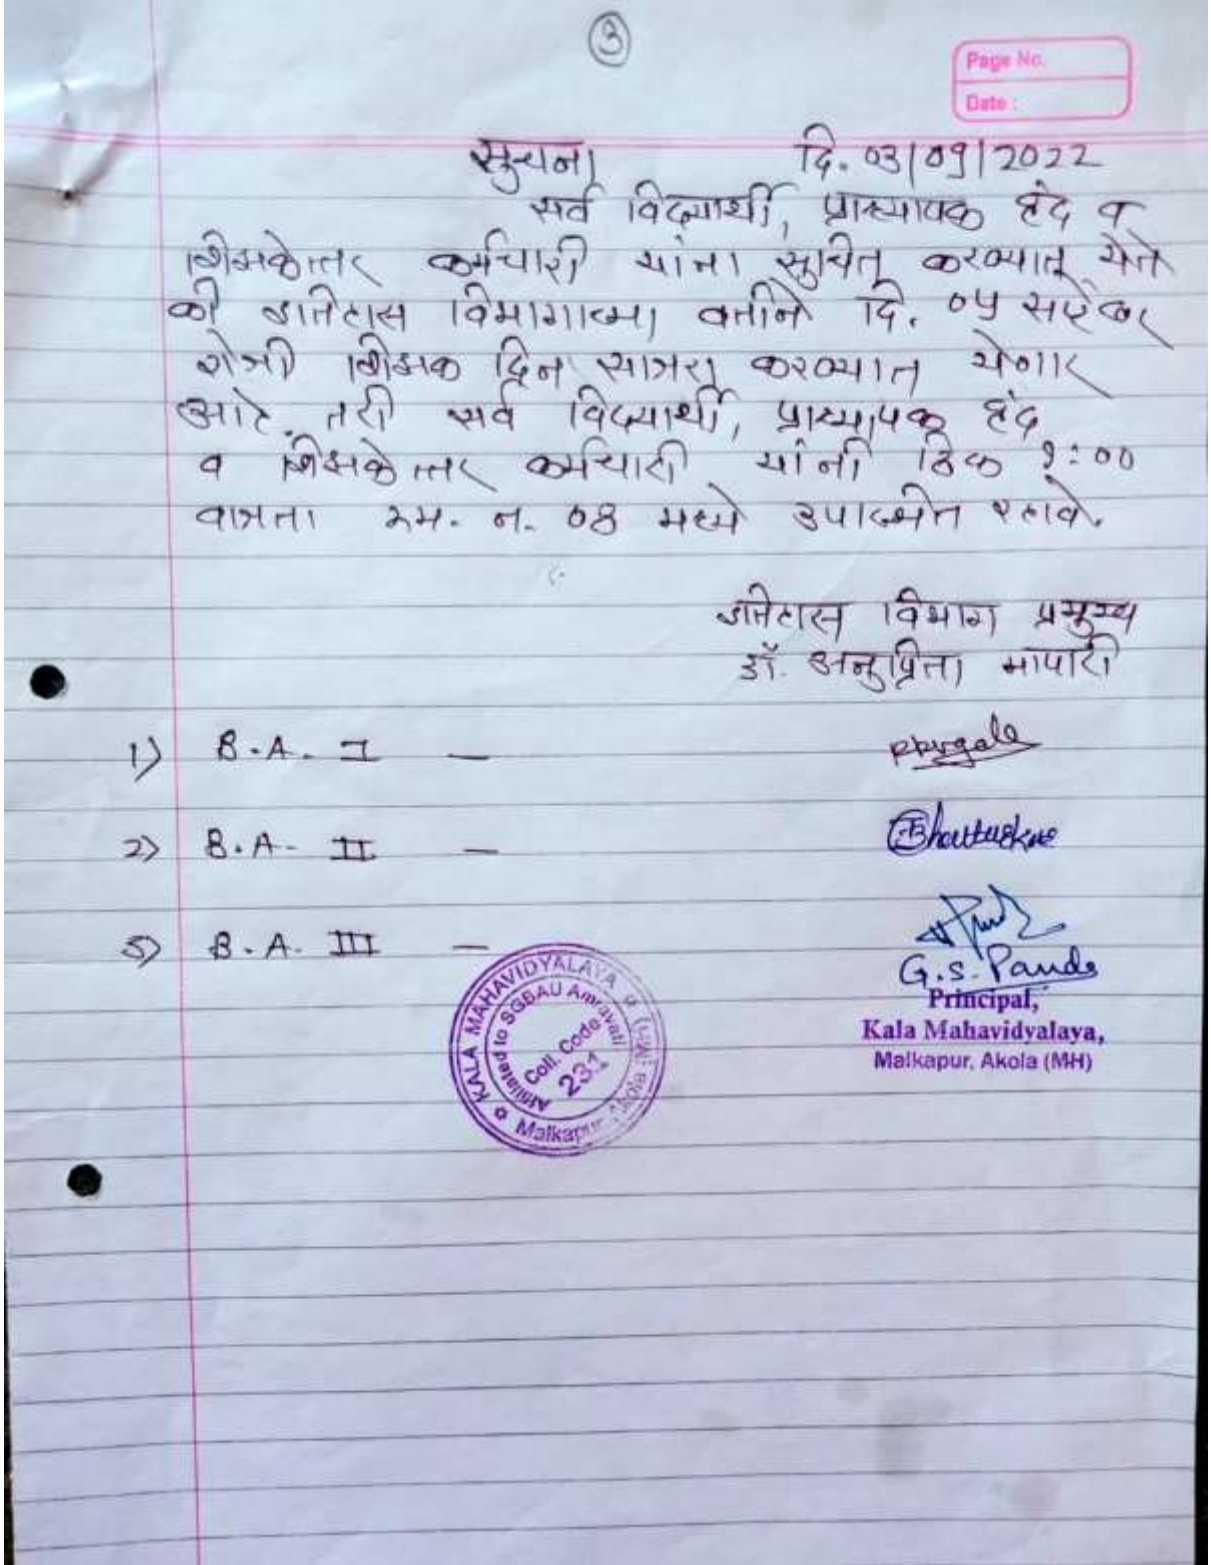 ३
Page No.
Date :
सुचना दि. 03/09/2022
सर्व विद्यार्थी, प्राध्यापक वृंद व
शिक्षकेत्तर कर्मचारी यांना सुचित करण्यात येते
की इतिहास विभागाच्या वतीने दि. ०५ सप्टेंबर
रोजी शिक्षक दिन साजरा करण्यात येणार
आहे. तरी सर्व विद्यार्थी, प्राध्यापक वृंद
व शिक्षकेत्तर कर्मचारी यांनी ठिक १:००
वाजता रूम. न. ०४ मध्ये उपास्थित रहावे.
इतिहास विभाग प्रमुख
डॉ. अनुप्रिता मापारी
1) B.A. I —
2) B.A- II —
3) B.A. III —
G.S. Pande
Principal,
Kala Mahavidyalaya,
Malkapur, Akola (MH)
KALA MAHAVIDYALAYA
Malkapur, Akola
Affiliated to SGBAU Amravati
Coll. Code-
231